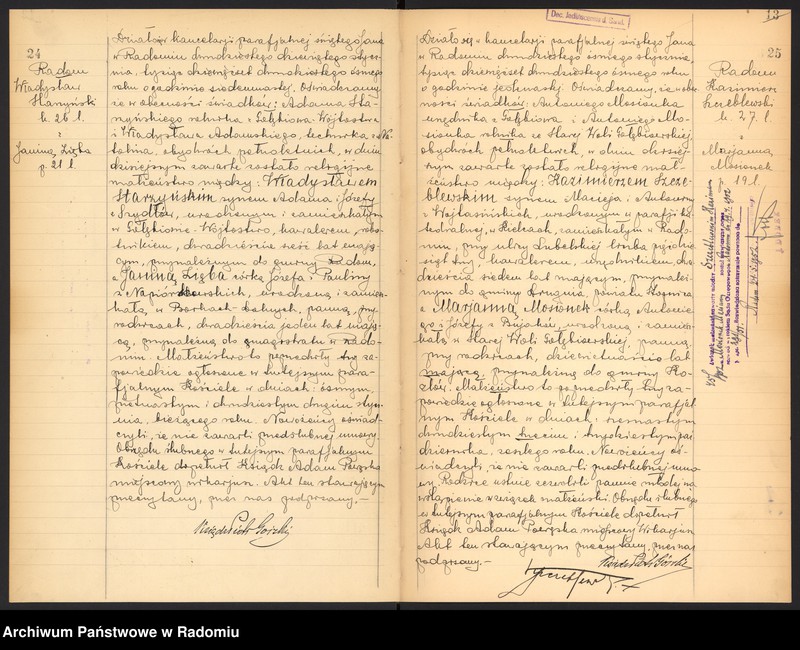 24
Radom
Władysław
Starzyński
k. 26 l.
i
Janina Zięba
p. 21 l.
Działo się w kancelarji parafjalnej świętego Jana
w Radomiu dwudziestego dziewiątego stycz-
nia, tysiąc dziewięćset dwudziestego ósmego
roku o godzinie siedemnastej. Oświadczamy,
że w obecności świadków: Adama Sta-
rzyńskiego rolnika z Gołębiowa-Wójtostwa
i Władysława Adamskiego, technika z
obydwóch pełnoletnich, w dniu
dzisiejszym zawarte zostało religijne
małżeństwo między: Władysławem
Starzyńskim synem Adama i Józefy
z Frydlów, urodzonym i zamieszkałym
w Gołębiowie-Wójtostwo, kawalerem, robo-
tnikiem, dwadzieścia sześć lat mają-
cym, przynależnym do gminy Radom,
a Janiną Ziębą córką Józefa i Pauliny
z Napiórkowskich, urodzoną i zamiesz-
kałą w Borkach-Lelnych, panną, przy
rodzicach, dwadzieścia jeden lat mają-
cą, przynależną do magistratu w Rado-
miu. Małżeństwo to poprzedziły trzy za-
powiedzie ogłoszone w tutejszym para-
fjalnym Kościele w dniach: ósmym,
piętnastym i dwudziestym drugim stycz-
nia, bieżącego roku. Nowożeńcy oświad-
czyli, że nie zawarli przedślubnej umowy.
Obrzędu ślubnego w tutejszym parafjalnym
Kościele dopełnił Ksiądz Adam Popęska
miejscowy wikarjusz. Akt ten stawającym
przeczytany, przez nas podpisany.-
Ksiądz Piotr Górski
Doc. Jedlaczowa d. Gaul.
13
25
Radom
Kazimierz
Szczeblewski
k. 27 l.
i
Marjanna
Mosionek
19 l.
Działo się w kancelarji parafjalnej świętego Jana
w Radomiu dwudziestego ósmego stycznia,
tysiąc dziewięćset dwudziestego ósmego roku
o godzinie jedenastej. Oświadczamy, że w obe-
cności świadków: Antoniego Mosionka
urzędnika z Gołębiowa i Antoniego Mo-
sionka rolnika ze Starej Woli Gołębiowskiej,
obydwóch pełnoletnich, w dniu dzisiej-
szym zawarte zostało religijne mał-
żeństwo między: Kazimierzem Szcze-
blewskim synem Macieja i Antoniny
z Wojtasińskich, urodzonym w parafji ka-
tedralnej w Kielcach, zamieszkałym w Rado-
miu, przy ulicy Lubelskiej liczba pięćdzie-
siąt trzy kawalerem, urzędnikiem, dwa-
dzieścia siedem lat mającym, przynależ-
nym do gminy
a Marjanną Mosionek córką Antonie-
go i Józefy z Bujaków, urodzoną i zamiesz-
kałą w Starej Woli Gołębiowskiej, panną,
przy rodzicach, dziewiętnaście lat
mającą, przynależną do gminy Ko-
złów. Małżeństwo to poprzedziły trzy za-
powiedzie ogłoszone w tutejszym parafjal-
nym Kościele w dniach: szesnastym
dwudziestym trzecim i trzydziestym paź-
dziernika, zeszłego roku. Nowożeńcy oś-
wiadczyli, że nie zawarli przedślubnej umo-
wy. Rodzice ustnie zezwolili pannie młodej na
wstąpienie w związek małżeński. Obrzędu ślubnego
w tutejszym parafjalnym Kościele dopełnił
Ksiądz Adam Popęska miejscowy Wikarjusz
Akt ten stawającym przeczytany, przez nas
podpisany.-
Ksiądz Piotr Górski
Archiwum Państwowe w Radomiu